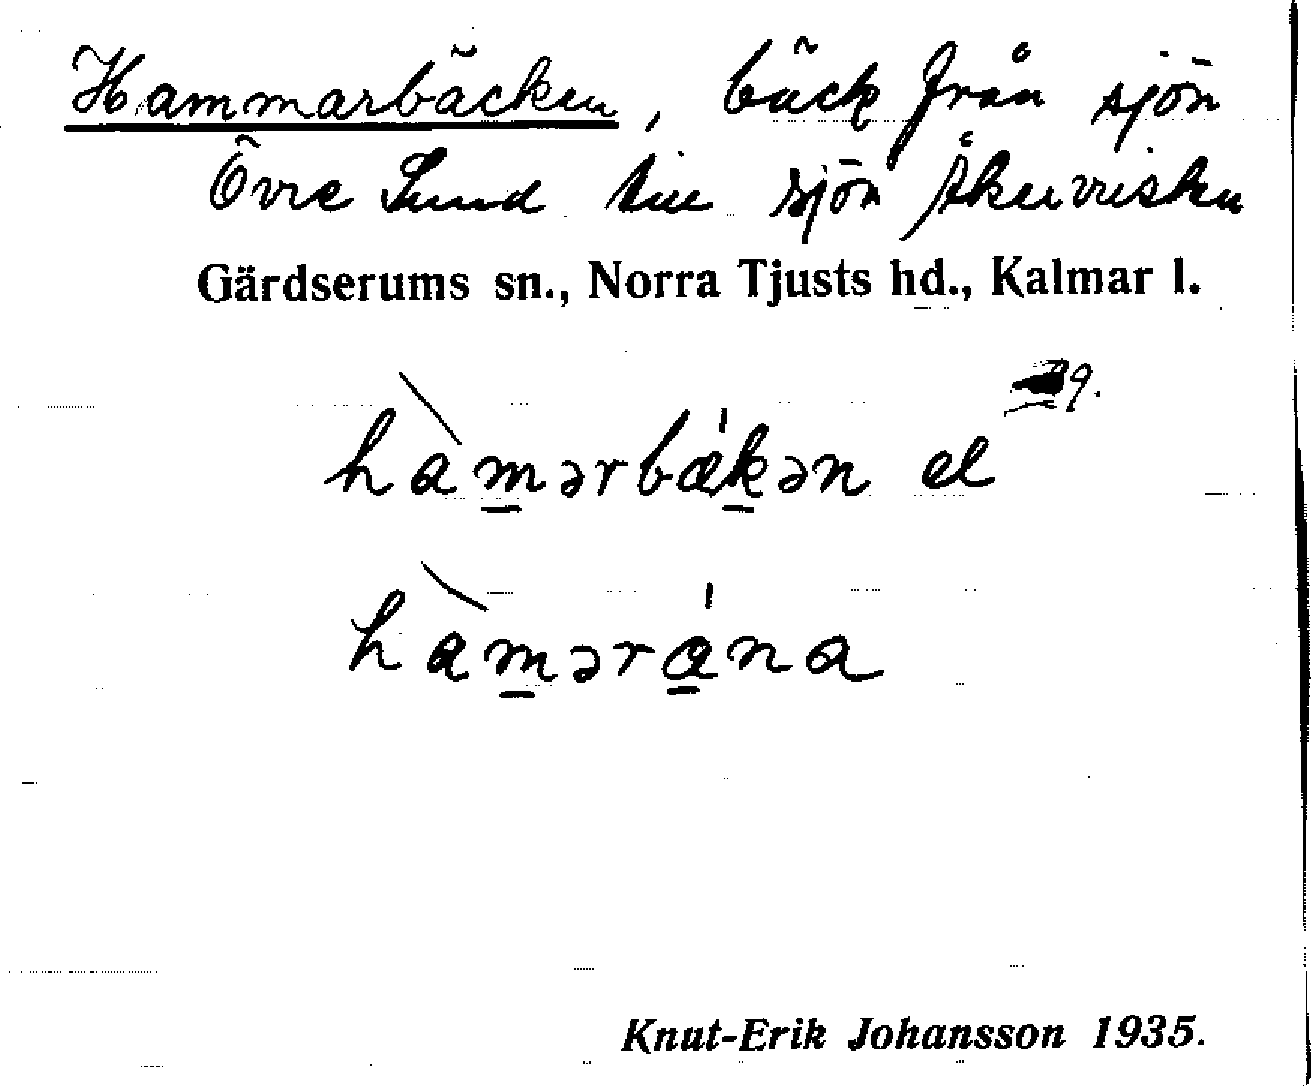 Hammarbäcken, bäck från sjön
Övre Sund till sjön Åkervristen
Gärdserums sn., Norra Tjusts hd., Kalmar l.
9.
hàmərbǽkən el
hàməråna
Knut-Erik Johansson 1935.